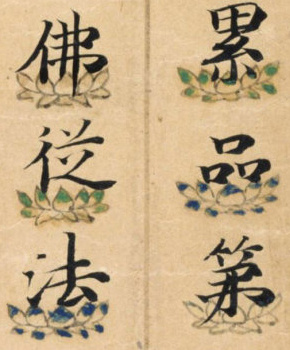 累品第
佛從法